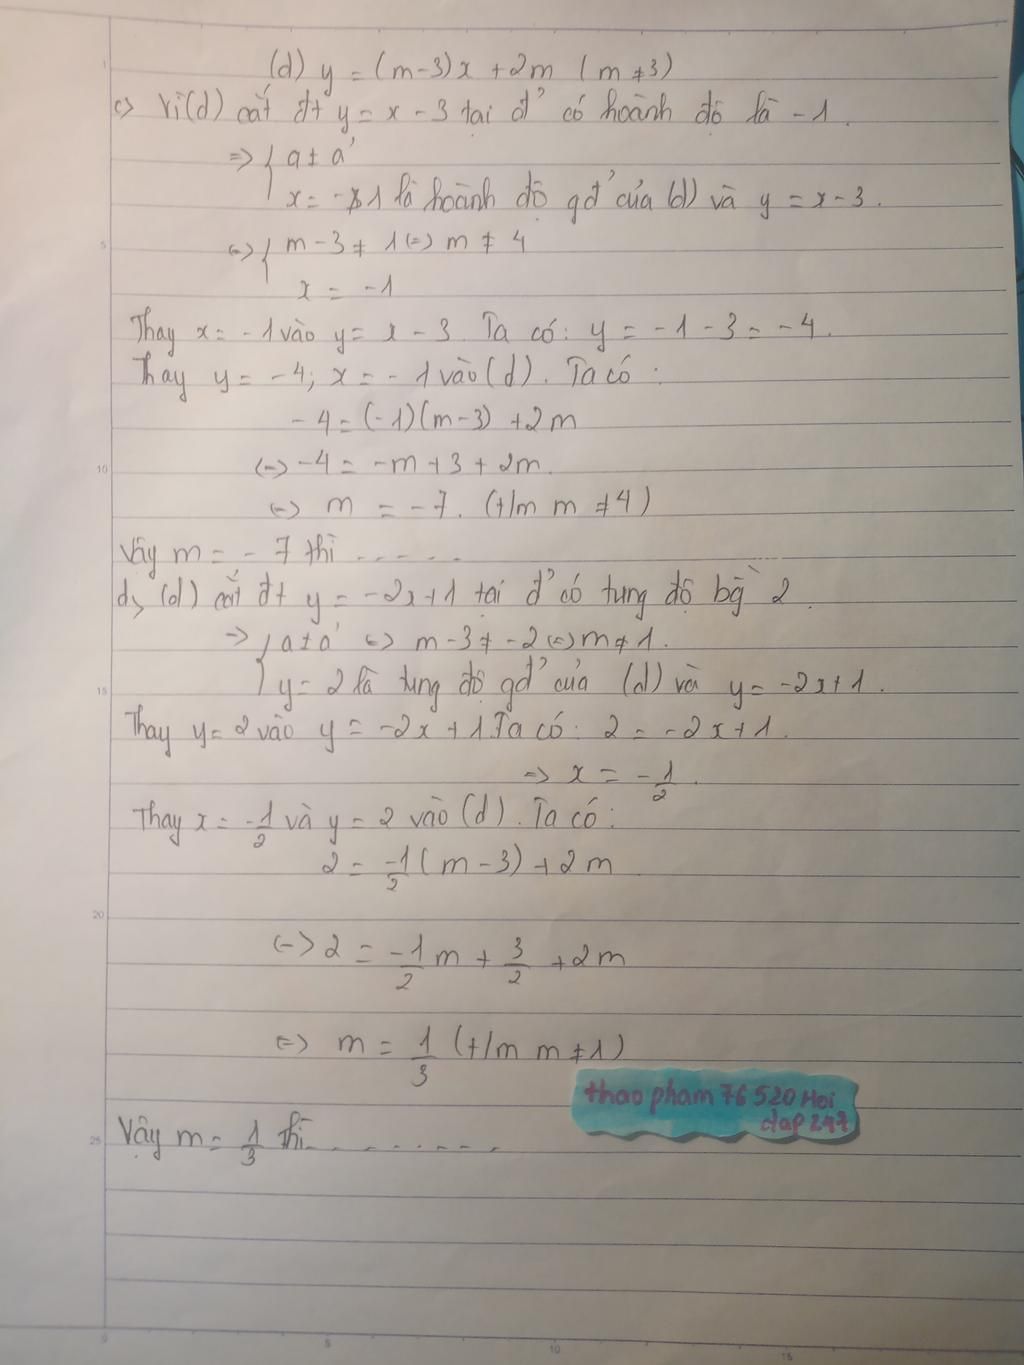 (d) y = (m-3)x + 2m (m ≠ 3)
c> Vì (d) cắt đt y = x - 3 tại đ' có hoành độ là -1.
=> { a ≠ a'
x = -1 là hoành độ gđ' của (d) và y = x - 3.
<=> { m - 3 ≠ 1 <=> m ≠ 4
x = -1
Thay x = -1 vào y = x - 3. Ta có: y = -1 - 3 = -4.
Thay y = -4; x = -1 vào (d). Ta có:
-4 = (-1)(m-3) + 2m
<=> -4 = -m + 3 + 2m.
<=> m = -7. (t/m m ≠ 4)
Vậy m = -7 thì .....
d> (d) cắt đt y = -2x+1 tại đ' có tung độ bg̀ 2.
=> { a ≠ a' <=> m - 3 ≠ -2 <=> m ≠ 1.
y = 2 là tung độ gđ' của (d) và y = -2x+1.
Thay y = 2 vào y = -2x + 1. Ta có: 2 = -2x + 1.
=> x = -1/2.
Thay x = -1/2 và y = 2 vào (d). Ta có:
2 = -1/2 (m-3) + 2m
<=> 2 = -1/2 m + 3/2 + 2m
<=> m = 1/3 (t/m m ≠ 1)
thao pham 76 520 Hoi
dap 247
Vậy m = 1/3 thì .........
1
5
10
15
20
25
0
5
10
15